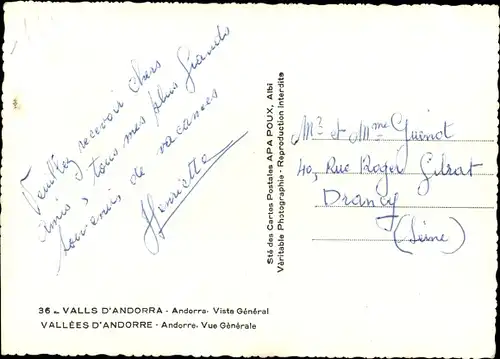 Veuillez recevoir Chers
amis, tous mes plus grands
souvenirs de vacances
Henriette
36 - VALLS D'ANDORRA - Andorra. Vista Général
VALLÉES D'ANDORRE - Andorre. Vue Générale
Sté des Cartes Postales APA POUX, Albi
Véritable Photographie - Reproduction Interdite
Mr et Mme Guenot
40, Rue Roger
Drancy
(Seine)